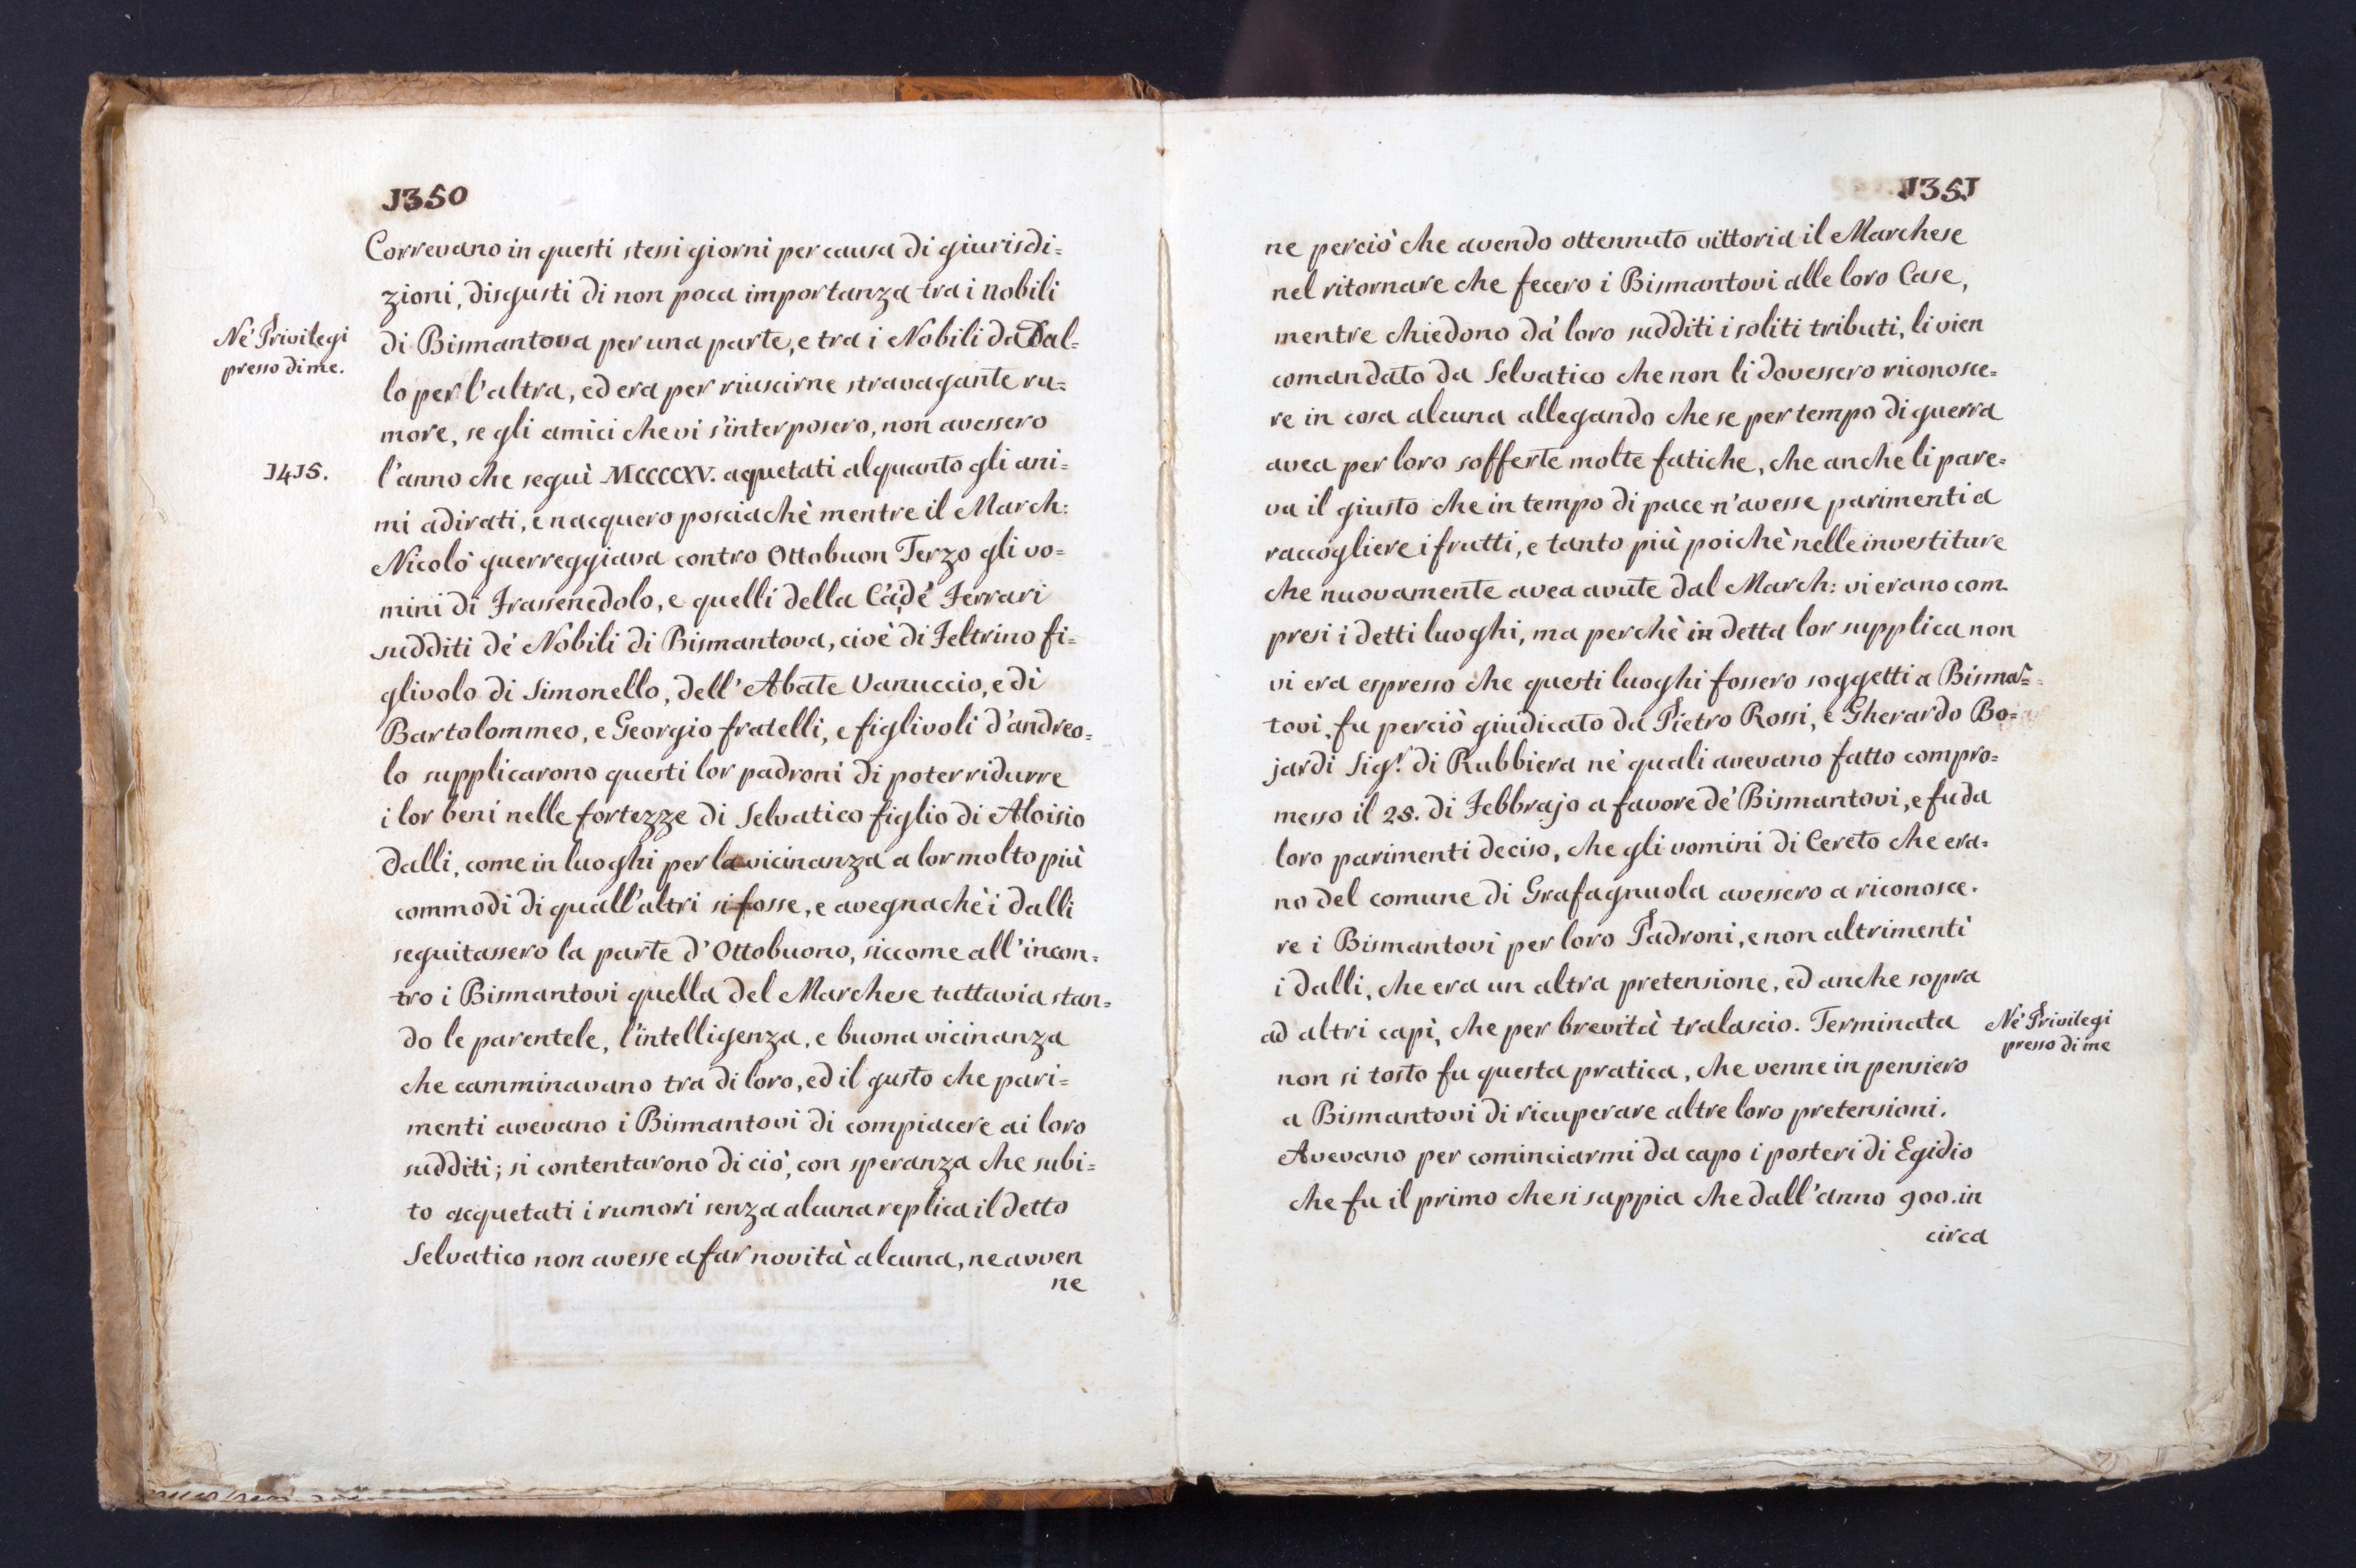 1350
Correvano in questi stessi giorni per causa di giurisdi=
zioni, disgusti di non poca importanza tra i nobili
Ne' Privilegi
presso di me.
di Bismantova per una parte, e tra i Nobili da Dal=
lo per l'altra, ed era per riuscirne stravagante ru=
more, se gli amici che vi s'interposero, non avessero
1415.
l'anno che seguì MCCCCXV. aquetati alquanto gli ani=
mi adirati, e nacquero posciachè mentre il March:
Nicolò guerreggiava contro Ottobuon Terzo gli uo=
mini di Frassenedolo, e quelli della Cà dè Ferrari
sudditi dè Nobili di Bismantova, cioè di Feltrino fi=
gliuolo di Simonello, dell'Abate Vanuccio, e di
Bartolommeo, e Georgio fratelli, e figlivoli d'andreo=
lo supplicarono questi lor padroni di poter ridurre
i lor beni nelle fortezze di Selvatico figlio di Aloisio
dalli, come in luoghi per la vicinanza a lor molto più
commodi di quall'altri si fosse, e avegnachè i dalli
seguitassero la parte d'Ottobuono, siccome all'incon=
tro i Bismantovi quella del Marchese tuttavia stan=
do le parentele, l'intelligenza, e buona vicinanza
che camminavano tra di loro, ed il gusto che pari=
menti avevano i Bismantovi di compiacere ai loro
sudditi; si contentarono di ciò, con speranza che subi=
to acquetati i rumori senza alcuna replica il detto
Selvatico non avesse a far novità alcuna, ne avven
ne
1351
ne perciò che avendo ottennuto vittoria il Marchese
nel ritornare che fecero i Bismantovi alle loro Case,
mentre chiedono dà loro sudditi i soliti tributi, li vien
comandato da Selvatico che non li dovessero riconosce=
re in cosa alcuna allegando che se per tempo di guerra
avea per loro sofferte molte fatiche, che anche li pare=
va il giusto che in tempo di pace n'avesse parimenti a
raccogliere i frutti, e tanto più poichè nelle investiture
che nuovamente avea avute dal March: vi erano com
presi i detti luoghi, ma perchè in detta lor supplica non
vi era espresso che questi luoghi fossero soggetti a Bismañ=
tovi, fu perciò giudicato da Pietro Rossi, e Gherardo Bo=
jardi Sig.r di Rubbiera nè quali avevano fatto compro=
messo il 28. di Febbrajo a favore dè Bismantovi, e fu da
loro parimenti deciso, che gli uomini di Cereto che era=
no del comune di Grafagnuola avessero a riconosce.
re i Bismantovi per loro Padroni, e non altrimenti
i dalli, che era un altra pretensione, ed anche sopra
ad altri capi, che per brevità tralascio. Terminata
Ne' Privilegi
presso di me
non si tosto fu questa pratica, che venne in pensiero
a Bismantovi di ricuperare altre loro pretensioni.
Avevano per cominciarmi da capo i posteri di Egidio
che fu il primo che si sappia che dall'anno 900. in
circa